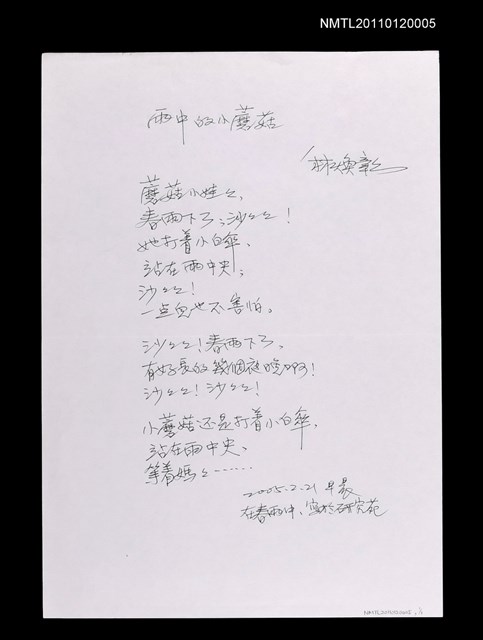 NMTL20110120005
雨中的小蘑菇
林煥彰
蘑菇小娃々,
春雨下了;沙々々!
她打着小白傘、
站在雨中央;
沙々々!
一点兒也不害怕。
沙々々!春雨下了。
有好長的幾個夜晚啊!
沙々々!沙々々!
小蘑菇还是打着小白傘,
站在雨中央、
等着媽々……
2005.2.21 早晨
在春雨中、寫於研究苑